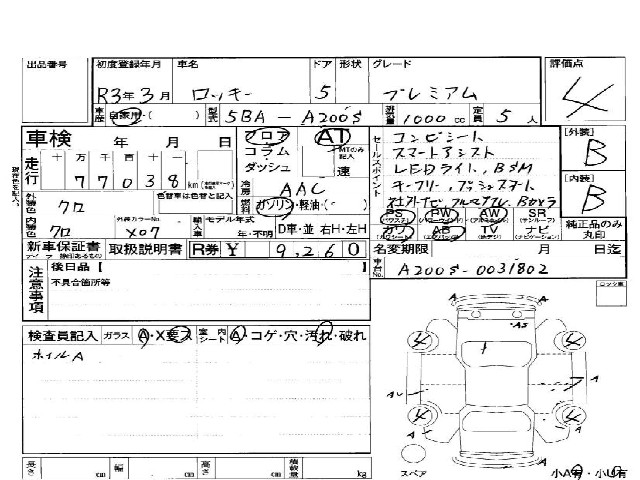 出品番号 初度登録年月 車名 ドア 形状 グレード 評価点
R3年3月 ロッキー 5 プレミアム 4
車歴 自家用・( ) 型式 5BA-A200S 排気量 1000cc 定員 5人
車検 年 月 日 フロア AT セールスポイント コンビシート [外装]
走行 十 万 千 百 十 一 コラム MTのみ記入 スマートアシスト B
77038km ダッシュ 速 LEDライト、BSM [内装]
外装色 クロ 色替車は色替と記入 冷房 AAC キーフリー、プッシュスタート B
燃料 ガソリン・軽油・( )
内装色 クロ 外装カラーNo. X07 輸入車 モデル年式 年・不明 D車・並 右H・左H
PS PW AW SR(サンルーフ) 純正品のみ丸印
カワ AB TV ナビ(ナビゲーション)
新車保証書 取扱説明書 R券 ¥ 9,260 名変期限 月 日迄
注意事項 後日品【 】 車台No. A200S-0031802
不具合箇所等
検査員記入 ガラス A・X要ス 室内シート A・コゲ・穴・汚れ・破れ
ホイルA
A A
A AS
4 4
A A
AU
4 4 A
A
スペア 小A有・小U有
長さ cm 幅 cm 高さ cm 積載量 kg